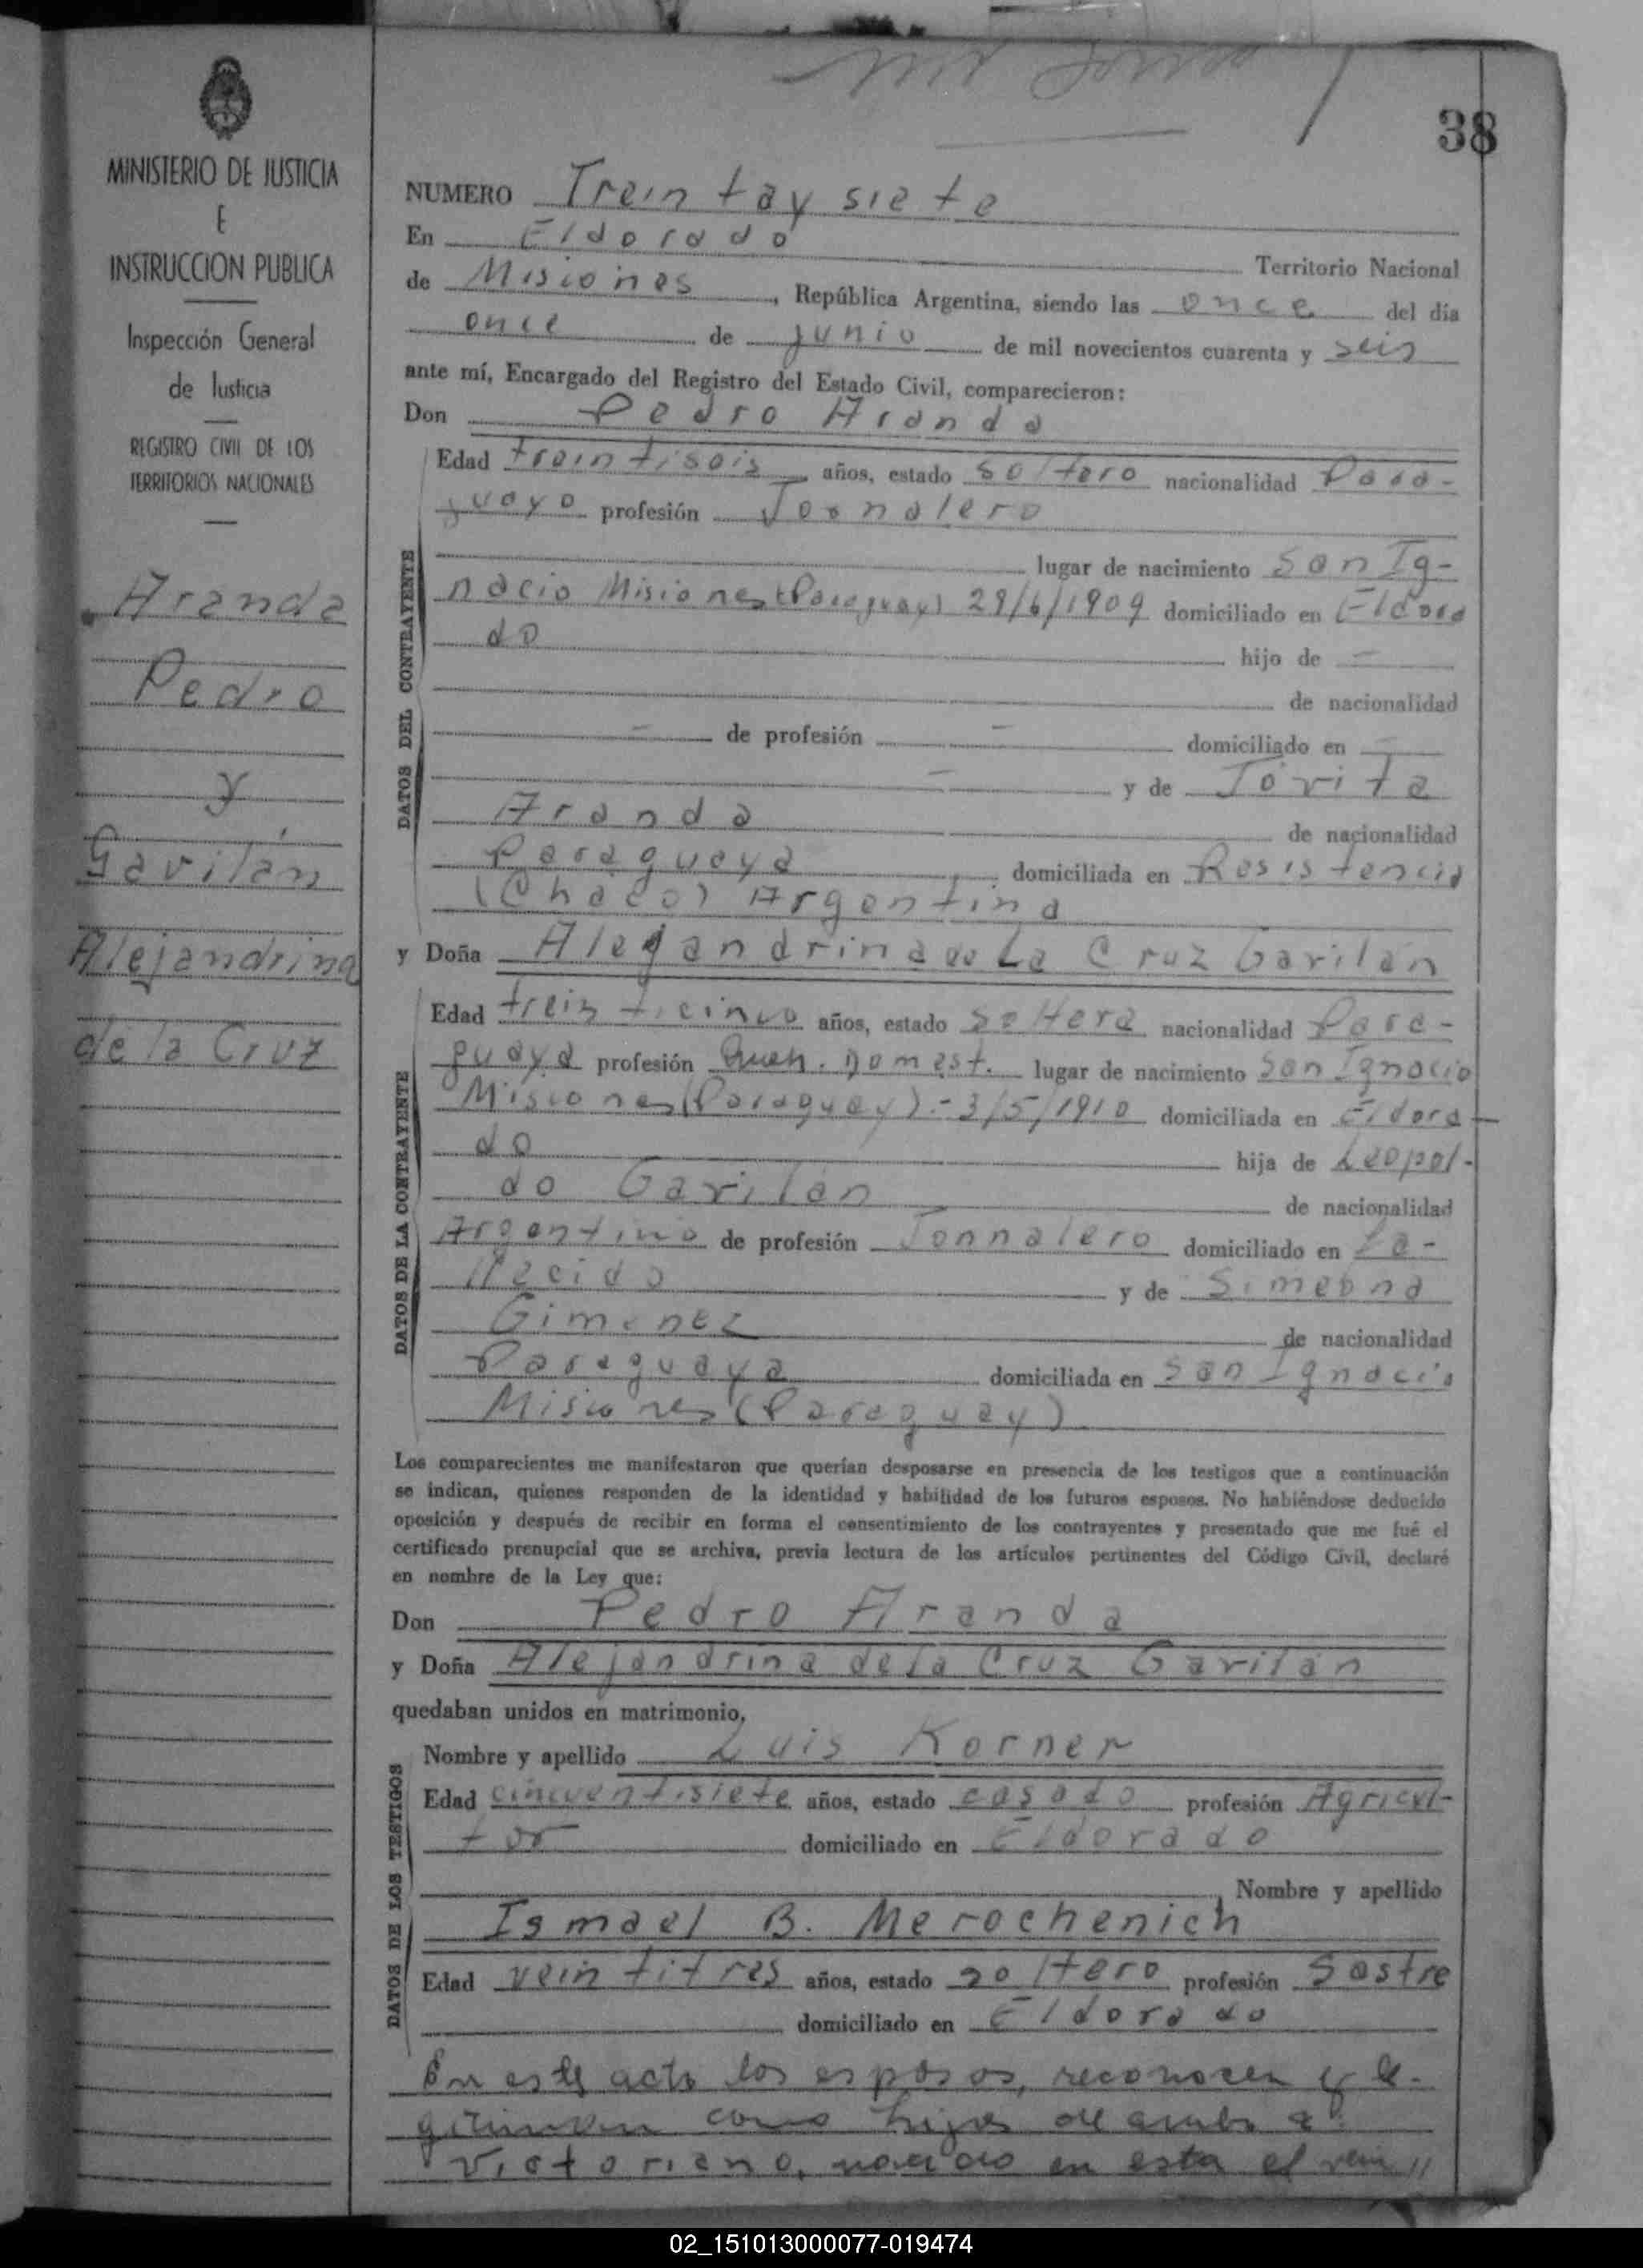 38
MINISTERIO DE JUSTICIA
E
INSTRUCCION PUBLICA
Inspección General
de Justicia
REGISTRO CIVIL DE LOS
TERRITORIOS NACIONALES
Aranda
Pedro
y
Gavilán
Alejandrina
de la Cruz
NUMERO Treinta y siete
En Eldorado Territorio Nacional
de Misiones, República Argentina, siendo las once del día
once de junio de mil novecientos cuarenta y seis
ante mí, Encargado del Registro del Estado Civil, comparecieron:
Don Pedro Aranda
DATOS DEL CONTRAYENTE
Edad treintiseis años, estado soltero nacionalidad Para-
guayo profesión Jornalero
lugar de nacimiento San Ig-
nacio Misiones (Paraguay) 29/6/1909 domiciliado en Eldora
do hijo de —
de nacionalidad
— de profesión — domiciliado en —
— y de Tovita
Aranda de nacionalidad
Paraguaya domiciliada en Resistencia
(Chaco) Argentina
y Doña Alejandrina de La Cruz Gavilán
DATOS DE LA CONTRAYENTE
Edad treinticinco años, estado soltera nacionalidad Para-
guaya profesión Queh. Domest. lugar de nacimiento San Ignacio
Misiones (Paraguay).- 3/5/1910 domiciliada en Eldora-
do hija de Leopol-
do Gavilán de nacionalidad
Argentino de profesión Jonnalero domiciliado en Fa-
llecido y de Simeona
Gimenez de nacionalidad
Paraguaya domiciliada en San Ignacio
Misiones (Paraguay)
Los comparecientes me manifestaron que querían desposarse en presencia de los testigos que a continuación
se indican, quienes responden de la identidad y habilidad de los futuros esposos. No habiéndose deducido
oposición y después de recibir en forma el consentimiento de los contrayentes y presentado que me fué el
certificado prenupcial que se archiva, previa lectura de los artículos pertinentes del Código Civil, declaré
en nombre de la Ley que:
Don Pedro Aranda
y Doña Alejandrina de la Cruz Gavilán
quedaban unidos en matrimonio,
DATOS DE LOS TESTIGOS
Nombre y apellido Luis Korner
Edad cincuentisiete años, estado casado profesión Agricul-
tor domiciliado en Eldorado
Nombre y apellido
Ismael B. Merochenich
Edad veintitres años, estado soltero profesión Sastre
domiciliado en Eldorado
En este acto los esposos, reconocen y le-
gitiman como hijos de ambos a:
Victoriano, nacido en esta el vein//
02_151013000077-019474